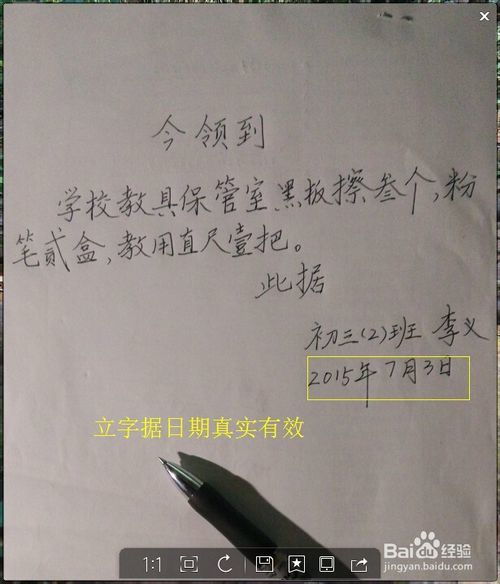 今领到
学校教具保管室黑板擦叁个,粉
笔贰盒,教用直尺壹把。
此据
初三(2)班 李义
2015年7月3日
立字据日期真实有效
1:1
Baidu经验
jingyan.baidu.com